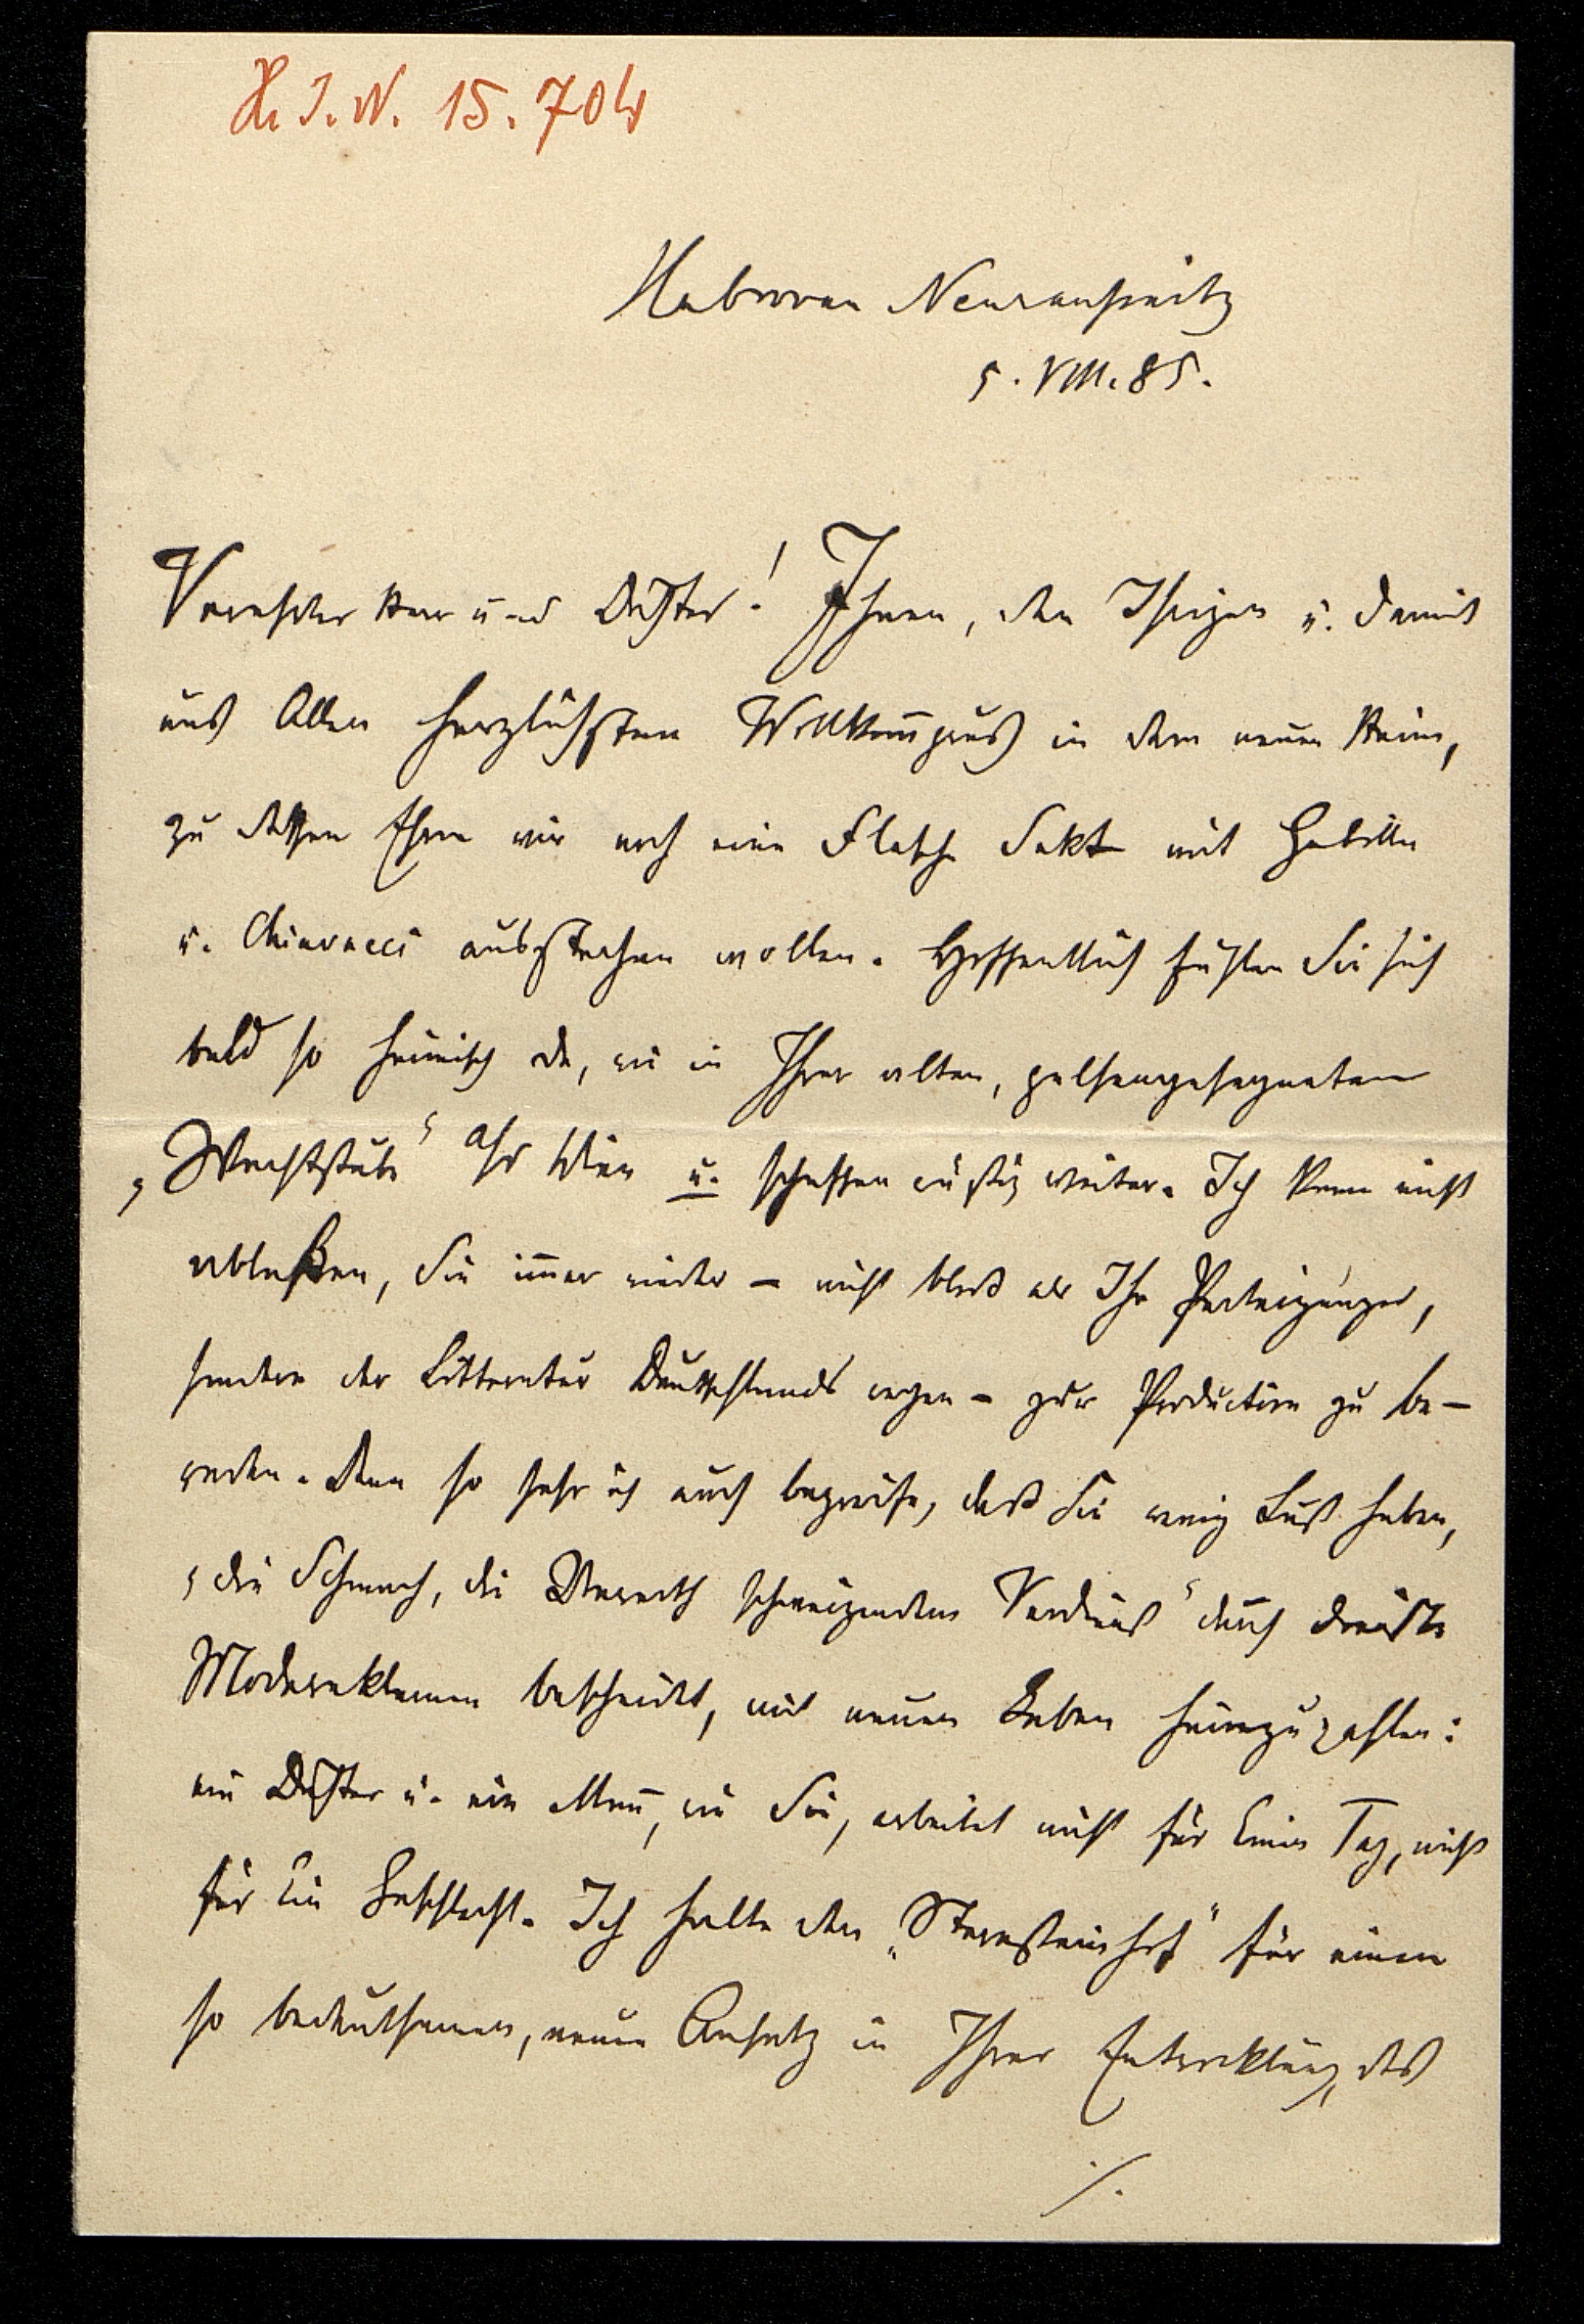 H. I. N. 15.704
Habrovan Neuraußnitz
5. VIII. 85.
Verehrter Herr und Dichter! Ihnen, den Ihrigen u. damit
uns Allen herzlichsten Willkom̅gruß in dem neuen Heim,
zu dessen Ehre wir noch eine Flasche Sekt mit Gabillon
u. Chiavacci ausstechen wollen. Hoffentlich fühlen Sie sich
bald so heimisch da, wie in Ihrer alten, gelsengesegneten
„Wachtstube“ Ihr Wien u. schaffen rüstig weiter. Ich kann nicht
ablaßen, Sie im̅er wieder – nicht bloß als Ihr Parteigänger,
sondern der Litteratur Deutschlands wegen – zur Production zu be-
reden. Denn so sehr ich auch begreife, daß Sie wenig Lust haben,
„die Schmach, die Unwerth schweigendem Verdienst“ durch dreiste
Modereklamen beschert, mit neuen Gaben heimzuzahlen:
ein Dichter u. ein Man̅, wie Sie, arbeitet nicht für Einen Tag, nicht
für Ein Geschlecht. Ich halte den „Sternsteinhof“ für einen
so bedeutsamen, neuen Ansatz in Ihrer Entwicklung, daß
./.